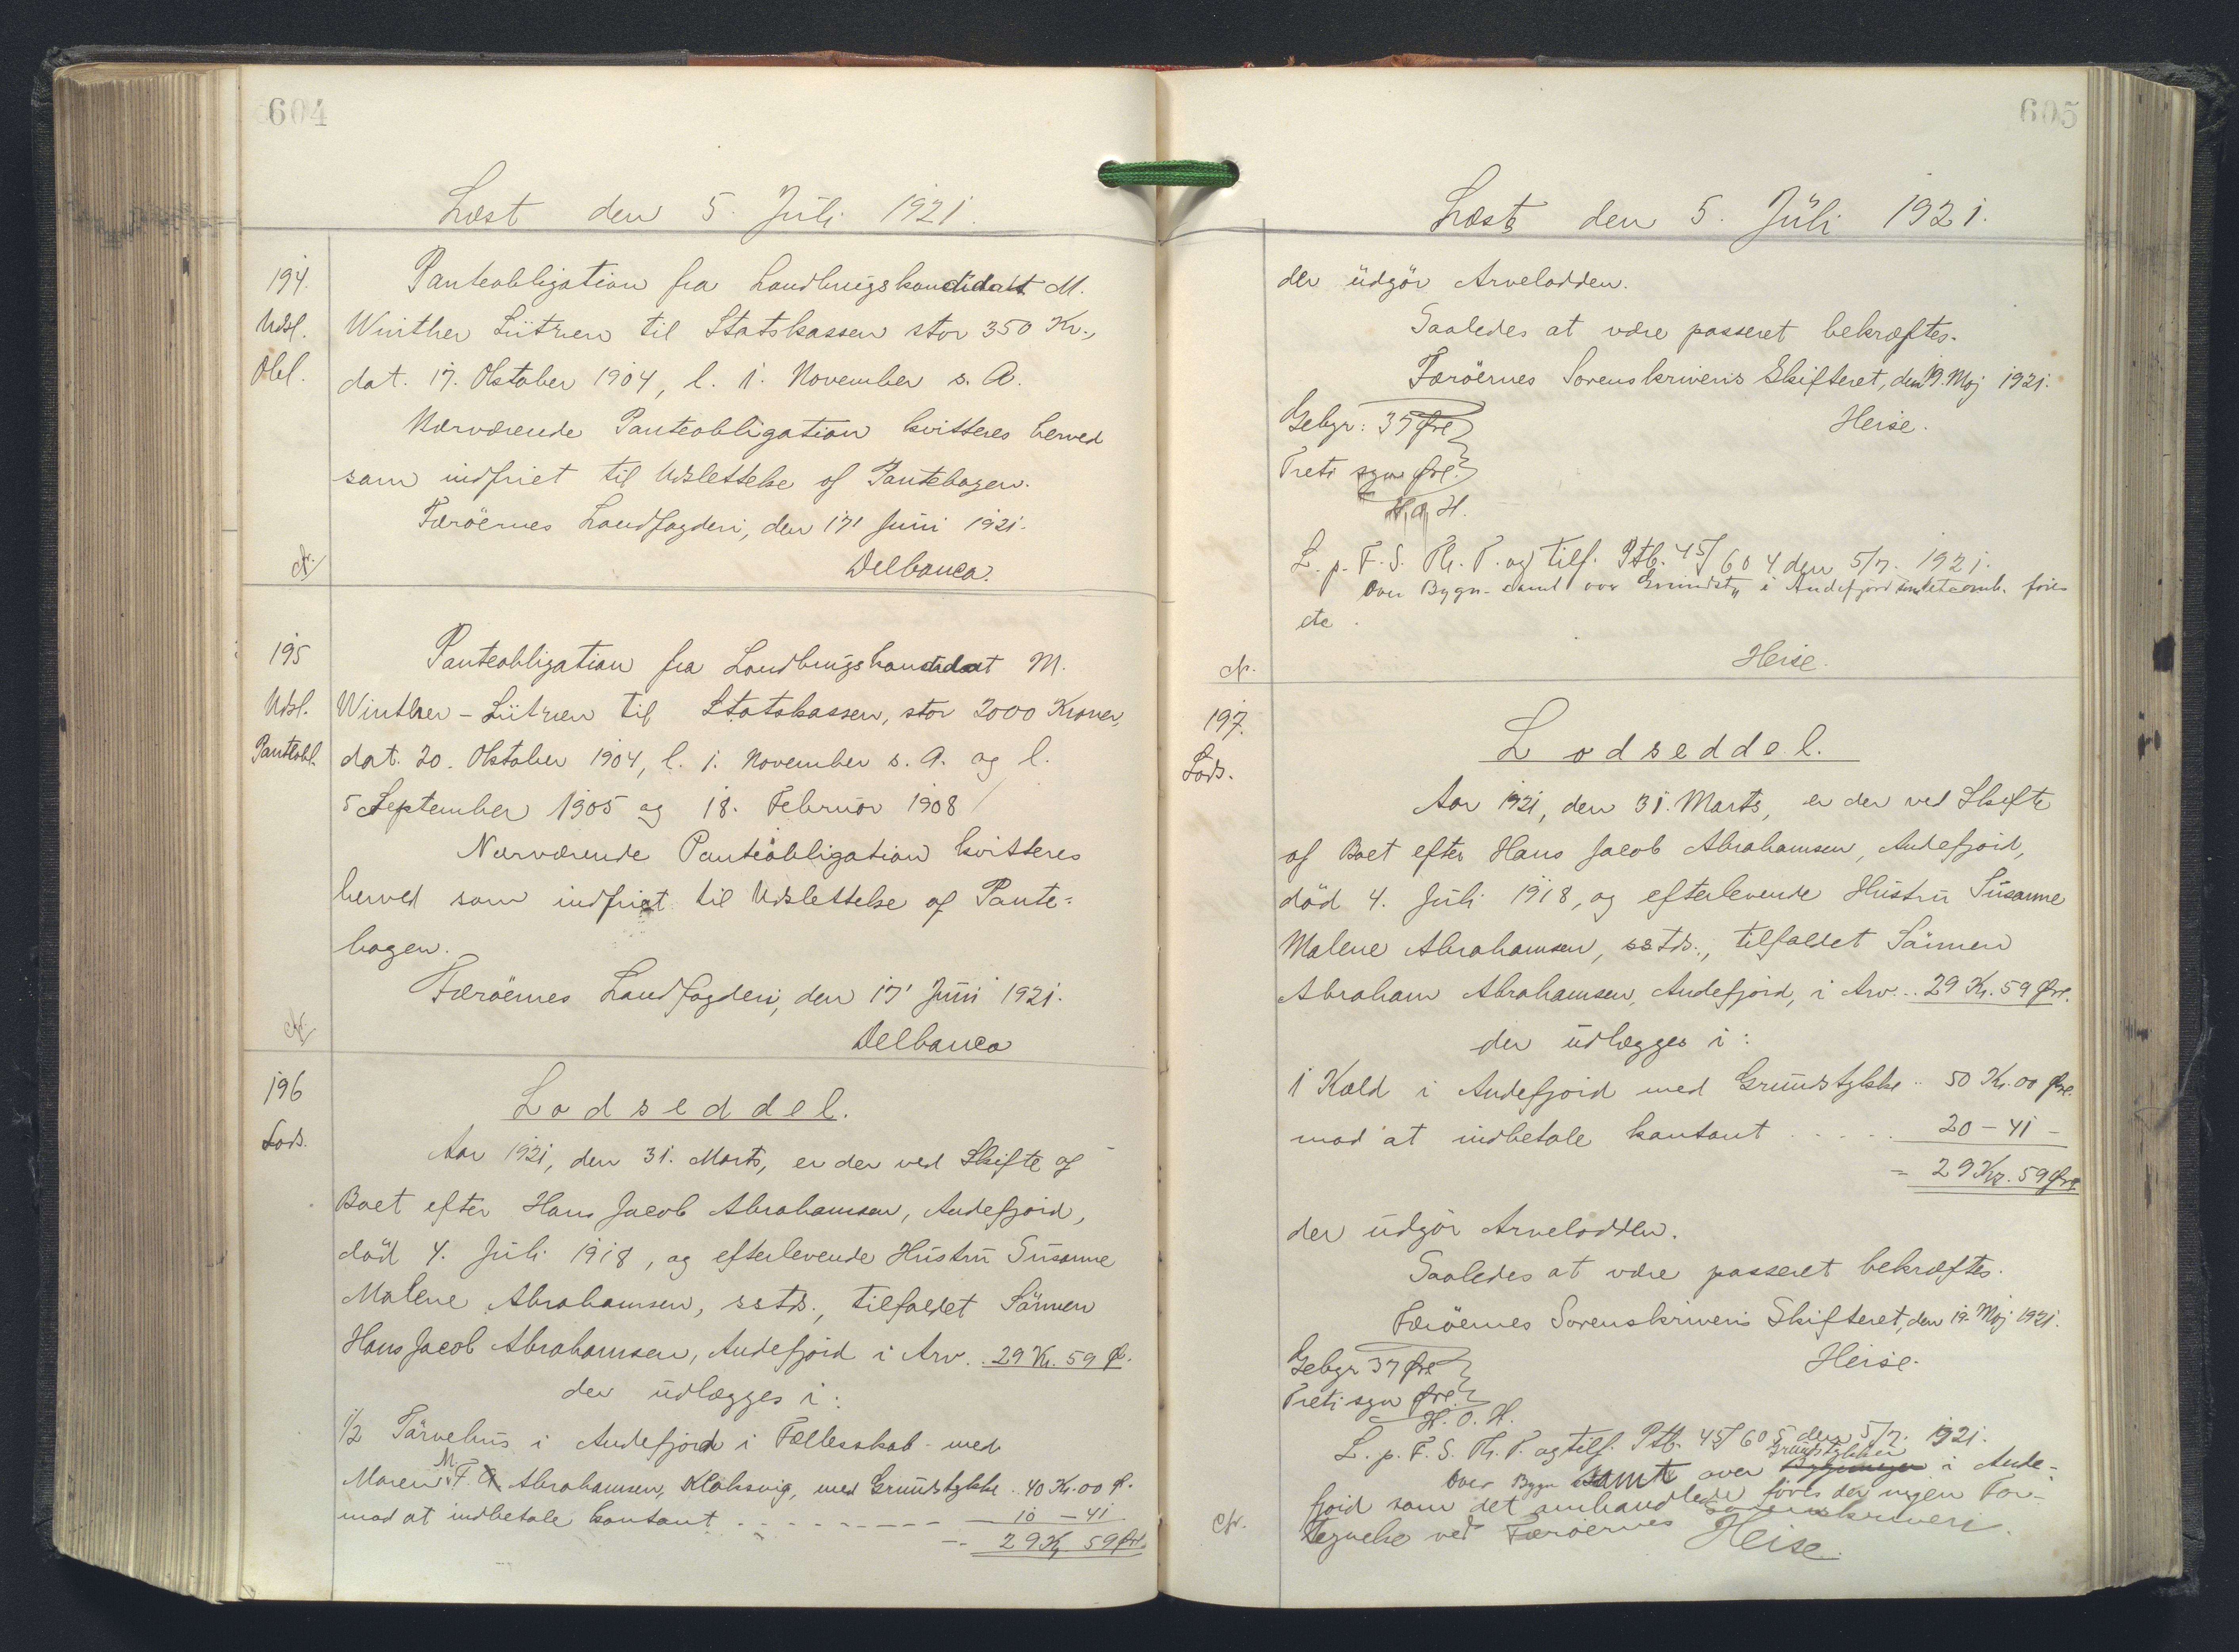 604
Læst den 5. Juli 1921.
194.
Udsl.
Obl.
Panteobligation fra Landbrugskandidat M.
Winther Lützen til Statskassen stor 350 Kr.,
dat. 17. Oktober 1904, l. 1. November s. A.
Nærværende Panteobligation kvitteres herved
som indfriet til Udslettelse af Pantebogen.
Færöernes Landfogderi, den 17' Juni 1921.
Delbanco.
195
Udsl.
Panteobl.
Panteobligation fra Landbrugskandidat M.
Winther-Lützen til Statskassen, stor 2000 Kroner,
dat. 20. Oktober 1904, l. 1. November s. A. og l.
5 September 1905 og 18. Februar 1908
Nærværende Panteobligation kvitteres
herved som indfriet til Udslettelse af Pante=
bogen.
Færöernes Landfogderi, den 17' Juni 1921.
Delbanco
196
Lods.
Lodseddel.
Aar 1921, den 31. Marts, er der ved Skifte af
Boet efter Hans Jacob Abrahamsen, Andefjord,
död 4. Juli 1918, og efterlevende Hustru Susanne
Malene Abrahamsen, sstds., tilfaldet Sönnen
Hans Jacob Abrahamsen, Andefjord i Arv.. 29 Kr. 59 Ø.
der udlægges i:
1/2 Törvehus i Andefjord i Fællesskab med
Maren M. F. Abrahamsen, Klaksvig, med Grundstykke . 40 Kr. 00 Ø.
mod at indbetale kontant - - - - - - - - 10 - 41
-- 29 Kr 59 Øre
605
Læst den 5. Juli 1921.
der udgör Arvelodden.
Saaledes at være passeret bekræftes.
Færöernes Sorenskriveris Skifteret, den 19. Maj 1921.
Heise.
Gebyr: 37 Øre
Treti syv Øre.
H. O. H.
L. p. F. S. Th. P. og tilf. Ptb. 45/604 den 5/7. 1921.
Over Bygn. samt over Grundst. i Andefjord som det omh. föres
etc.
Heise.
197.
Lods.
Lodseddel.
Aar 1921, den 31. Marts, er der ved Skifte
af Boet efter Hans Jacob Abrahamsen, Andefjord,
död 4. Juli 1918, og efterlevende Hustru Susanne
Malene Abrahamsen, sstds., tilfaldet Sönnen
Abraham Abrahamsen, Andefjord, i Arv... 29 Kr. 59 Øre.
der udlægges i:
1 Kald i Andefjord med Grundstykke .. 50 Kr. 00 Øre.
mod at indbetale kontant . . . . . 20 - 41 -
= 29 Kr. 59 Øre
der udgör Arvelodden.
Saaledes at være passeret bekræftes.
Færöernes Sorenskriveris Skifteret, den 19. Maj 1921.
Heise.
Gebyr 37 Øre
Treti syv Øre.
H. O. H.
L. p. F. S. Th. P. og tilf. Ptb. 45/605 den 5/7. 1921.
Over Bygn samt over Grundstykker i Ande-
fjord som det omhandlede föres der ingen For-
tegnelse ved Færöernes Sorenskriveri.
Heise.